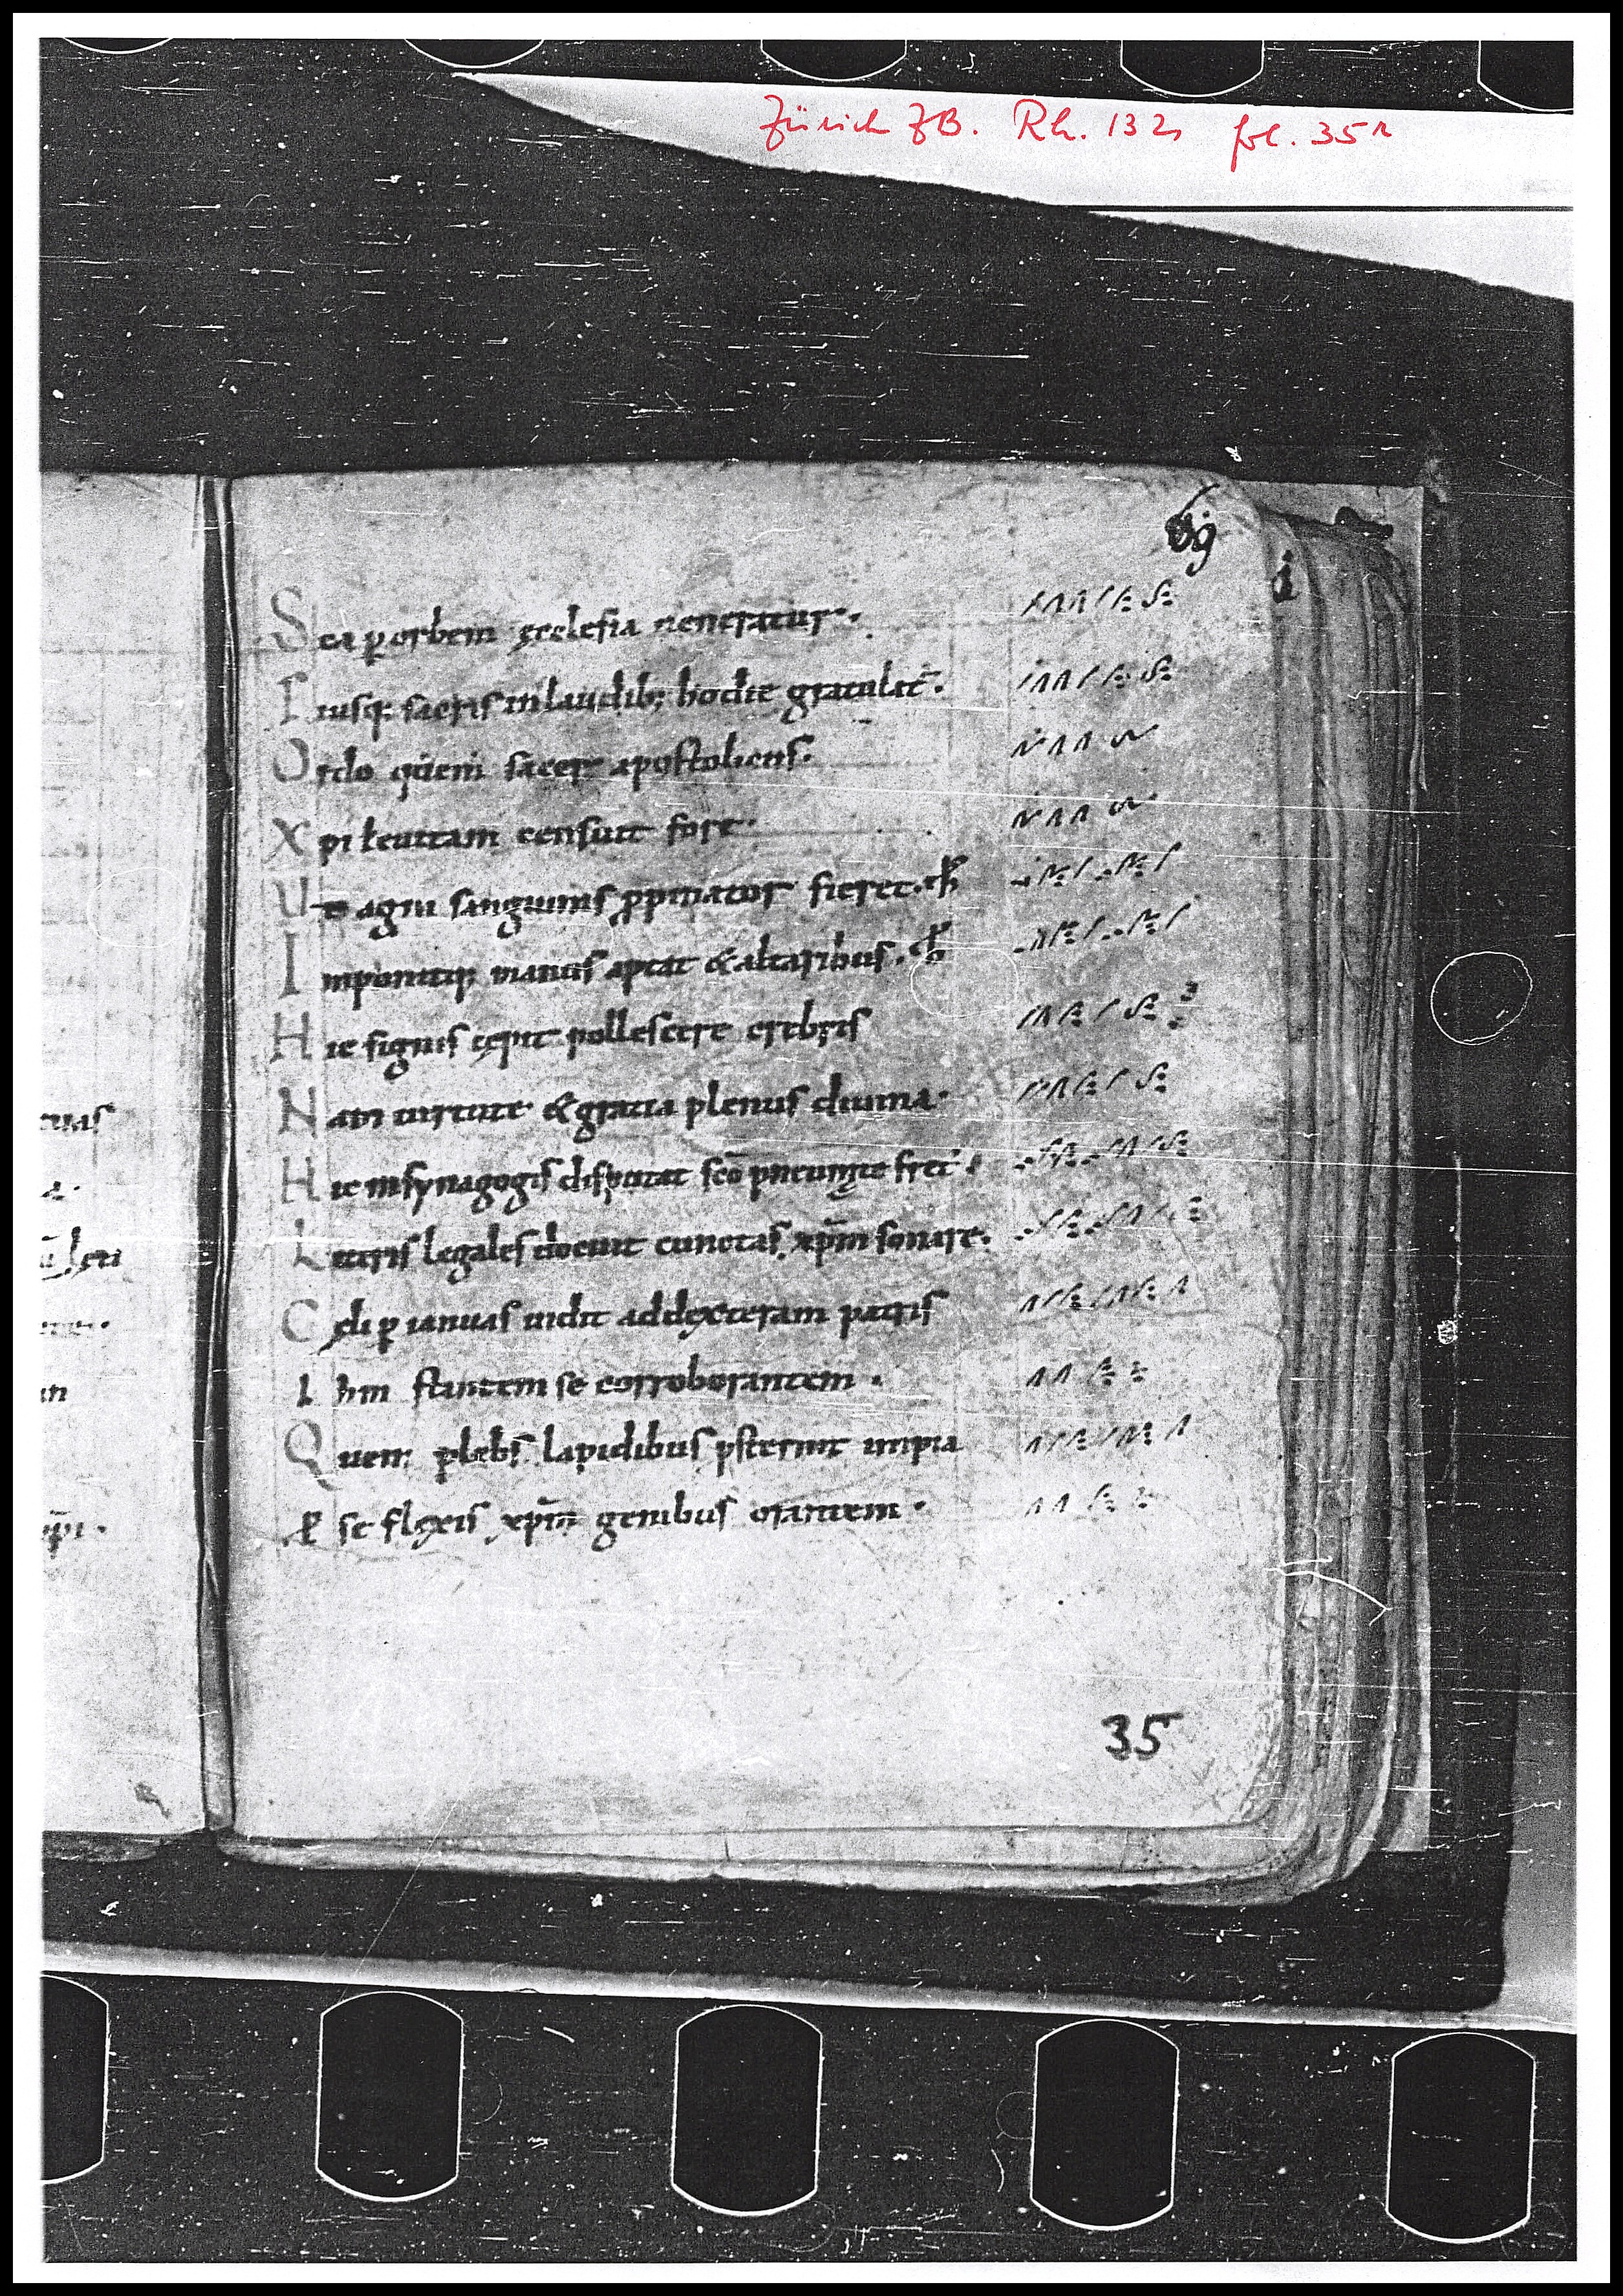 Zürich ZB. Rh. 132, fol. 35r
Sca ꝑ orbem ęcclesia ueneratur.
Eiusq; sacris in laudib; hodie gratulat̄.
Ordo quem sacer apostolicus.
Xpi leuitam censuit fore.
Ut agni sanguinis ꝓpinator fieret.
Imponitq; manus aptat & altaribus.
Hic signis cępit pollescere crebris
Nam uirtute & gratia plenus diuina.
Hic in synagogis disputat sc̄o pneumate fret᾽.
Litteris legales docuit cunctas xp̄m sonare.
Cęli ꝑ ianuas uidit ad dexteram patris
Ihm stantem se corroborantem.
Quem plebs lapidibus p̄sternit impia
P se flexis xp̄m genibus orantem.
35
tuas